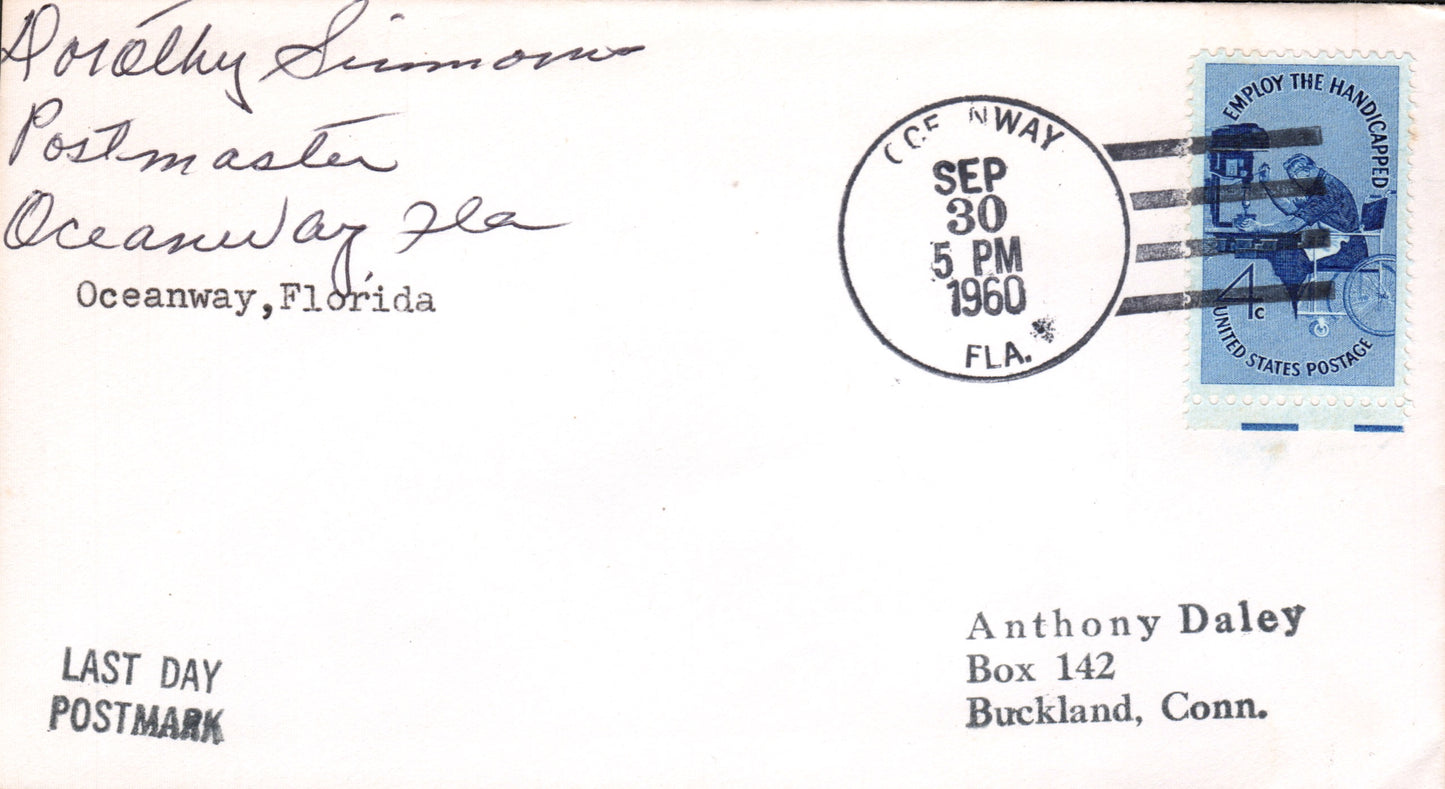 Dorothy Simmons
Postmaster
Oceanway Fla
Oceanway,Florida
OCE NWAY
SEP
30
5 PM
1960
FLA.
EMPLOY THE HANDICAPPED
4c
UNITED STATES POSTAGE
LAST DAY
POSTMARK
Anthony Daley
Box 142
Buckland, Conn.